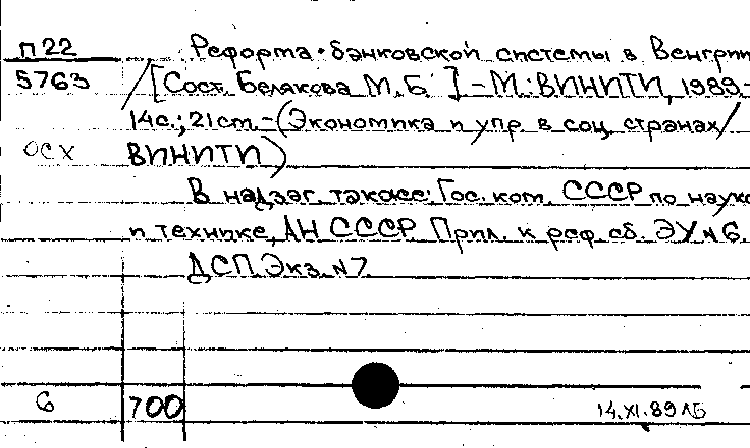 П22
5763
Реформа банковской системы в Венгрии
/[Сост. Белякова М.Б.]-М.:ВИНИТИ, 1989.-
14с.; 21cm.-(Экономика и упр. в соц. странах/
ОСХ
ВИНИТИ)
В надзаг. также: Гос. ком. СССР по науке
и технике, АН СССР. Прил. к реф. сб. ЭУ №6.
ДСП. Экз. №7.
6
700
14.XI.89 ЛБ